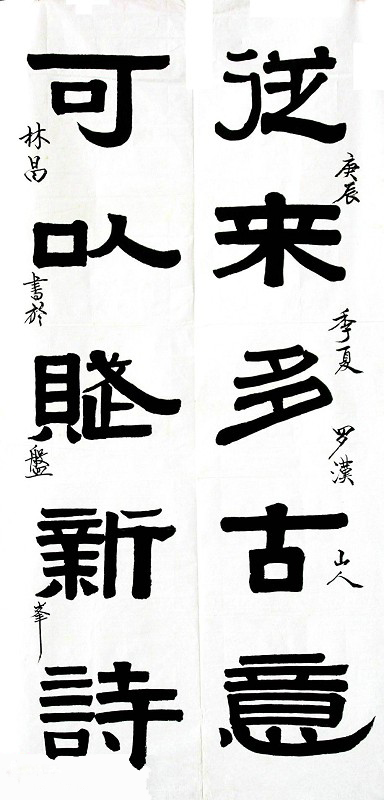 従来多古意
庚辰季夏罗漢山人
可以賦新詩
林昌書於盤峯